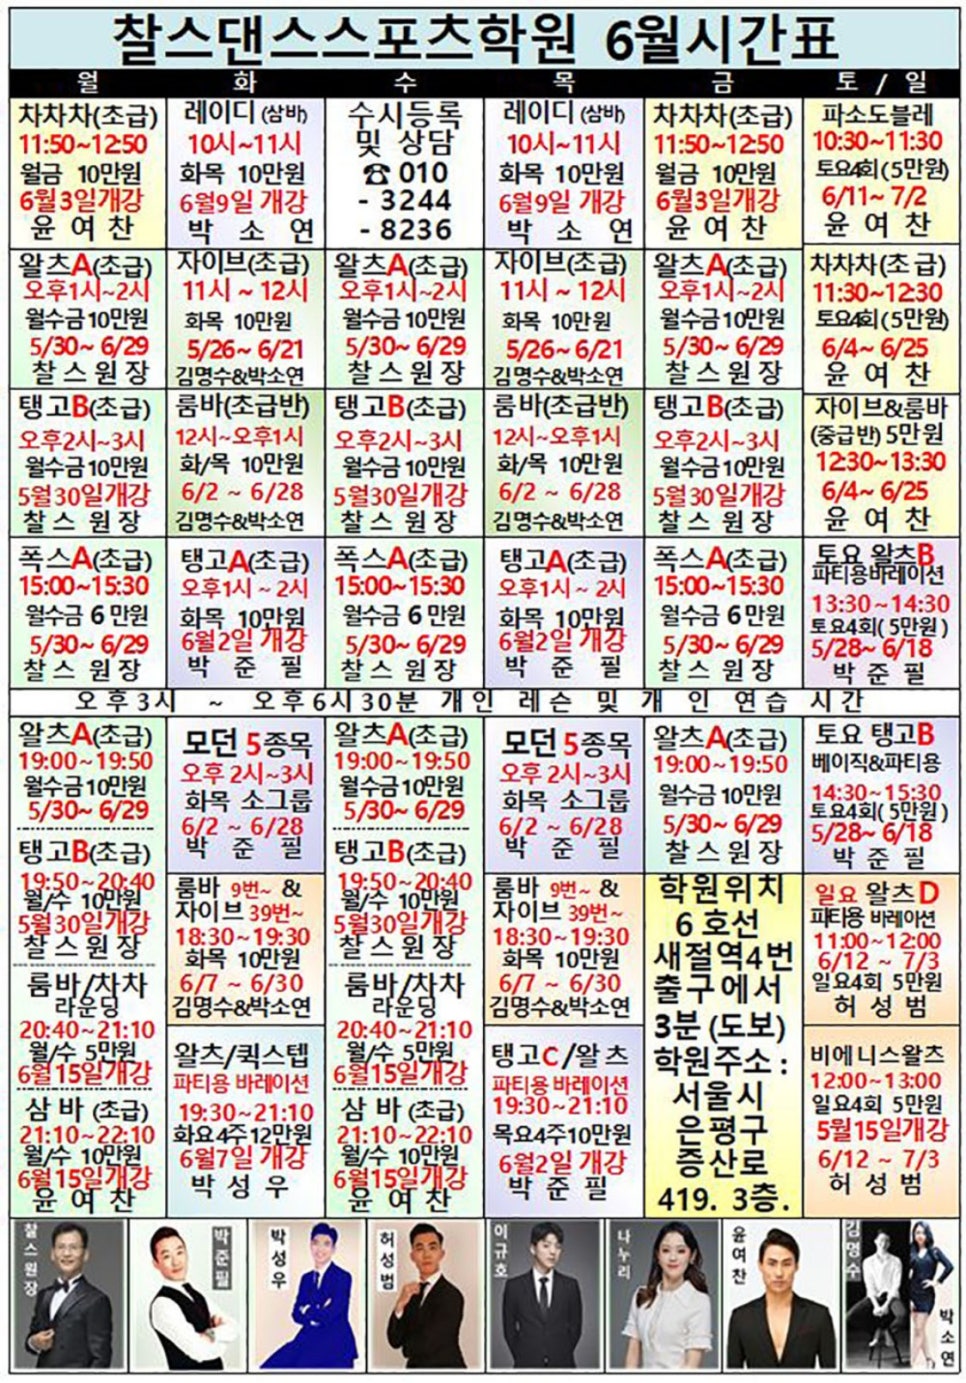 찰스댄스스포츠학원 6월시간표
월 화 수 목 금 토 / 일
차차차(초급)
11:50~12:50
월금 10만원
6월3일개강
윤 여 찬
레이디 (삼바)
10시~11시
화목 10만원
6월9일 개강
박 소 연
수시등록
및 상담
☎ 010
- 3244
- 8236
레이디 (삼바)
10시~11시
화목 10만원
6월9일 개강
박 소 연
차차차(초급)
11:50~12:50
월금 10만원
6월3일개강
윤 여 찬
파소도블레
10:30~11:30
토요4회(5만원)
6/11~ 7/2
윤 여 찬
왈츠A(초급)
오후1시~2시
월수금10만원
5/30~ 6/29
찰 스 원 장
자이브(초급)
11시 ~ 12시
화목 10만원
5/26~ 6/21
김명수&박소연
왈츠A(초급)
오후1시~2시
월수금10만원
5/30~ 6/29
찰 스 원 장
자이브(초급)
11시 ~ 12시
화목 10만원
5/26~ 6/21
김명수&박소연
왈츠A(초급)
오후1시~2시
월수금10만원
5/30~ 6/29
찰 스 원 장
차차차(초급)
11:30~12:30
토요4회(5만원)
6/4~ 6/25
윤 여 찬
탱고B(초급)
오후2시~3시
월수금10만원
5월30일개강
찰 스 원 장
룸바(초급반)
12시~오후1시
화/목 10만원
6/2 ~ 6/28
김명수&박소연
탱고B(초급)
오후2시~3시
월수금10만원
5월30일개강
찰 스 원 장
룸바(초급반)
12시~오후1시
화/목 10만원
6/2 ~ 6/28
김명수&박소연
탱고B(초급)
오후2시~3시
월수금10만원
5월30일개강
찰 스 원 장
자이브&룸바
(중급반) 5만원
12:30~13:30
6/4~ 6/25
윤 여 찬
폭스A(초급)
15:00~15:30
월수금 6만원
5/30~ 6/29
찰 스 원 장
탱고A(초급)
오후1시 ~ 2시
화목 10만원
6월2일 개강
박 준 필
폭스A(초급)
15:00~15:30
월수금 6만원
5/30~ 6/29
찰 스 원 장
탱고A(초급)
오후1시 ~ 2시
화목 10만원
6월2일 개강
박 준 필
폭스A(초급)
15:00~15:30
월수금 6만원
5/30~ 6/29
찰 스 원 장
토요 왈츠B
파티용바레이션
13:30~14:30
토요4회( 5만원)
5/28~ 6/18
박 준 필
오후3시 ~ 오후6시30분 개인 레슨 및 개 인 연습 시간
왈츠A(초급)
19:00~19:50
월수금10만원
5/30~ 6/29
탱고B(초급)
19:50~20:40
월/수 10만원
5월30일개강
찰 스 원 장
룸바/차차
라운딩
20:40~21:10
월/수 5만원
6월15일개강
삼 바 (초급)
21:10~22:10
월/수 10만원
6월15일개강
윤 여 찬
모던 5종목
오후 2시~3시
화목 소그룹
6/2 ~ 6/28
박 준 필
룸바 9번~ &
자이브 39번~
18:30~19:30
화목 10만원
6/7 ~ 6/30
김명수&박소연
왈츠/퀵스텝
파티용 바레이션
19:30~21:10
화요4주12만원
6월7일 개강
박 성 우
왈츠A(초급)
19:00~19:50
월수금10만원
5/30~ 6/29
탱고B(초급)
19:50~20:40
월/수 10만원
5월30일개강
찰 스 원 장
룸바/차차
라운딩
20:40~21:10
월/수 5만원
6월15일개강
삼 바 (초급)
21:10~22:10
월/수 10만원
6월15일개강
윤 여 찬
모던 5종목
오후 2시~3시
화목 소그룹
6/2 ~ 6/28
박 준 필
룸바 9번~ &
자이브 39번~
18:30~19:30
화목 10만원
6/7 ~ 6/30
김명수&박소연
탱고C/왈츠
파티용 바레이션
19:30~21:10
목요4주10만원
6월2일 개강
박 준 필
왈츠A(초급)
19:00~19:50
월수금10만원
5/30~ 6/29
찰 스 원 장
학원위치
6 호선
새절역4번
출구에서
3분 (도보)
학원주소 :
서울시
은평구
증산로
419. 3층.
토요 탱고B
베이직&파티용
14:30~15:30
토요4회( 5만원)
5/28~ 6/18
박 준 필
일요 왈츠D
파티용 바레이션
11:00~12:00
6/12 ~ 7/3
일요4회 5만원
허 성 범
비에니스왈츠
12:00~13:00
일요4회 5만원
5월15일개강
6/12 ~ 7/3
허 성 범
찰스원장
박준필
박성우
허성범
이규호
나누리
윤여찬
김명수
박소연